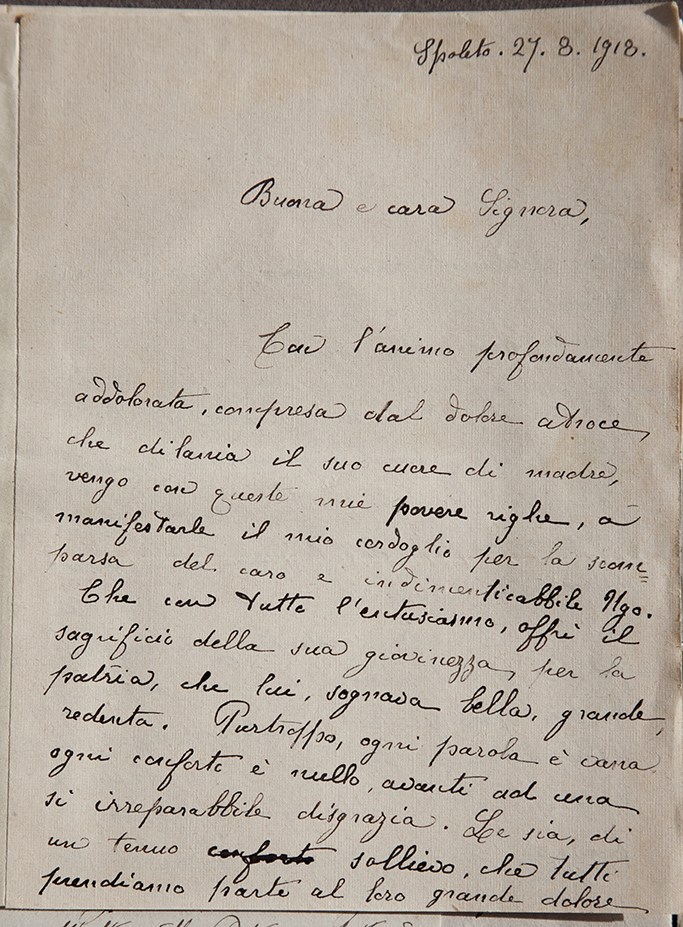 Spoleto. 27. 8. 1918.
Buona e cara Signora,
Con l'animo profondamente
addolorata, compresa dal dolore atroce,
che dilania il suo cuore di madre,
vengo con queste mie povere righe, a
manifestarle il mio cordoglio per la scom=
parsa del caro e indimenticabbile Ugo.
Che con tutto l'entusiasmo, offrì il
sagrificio della sua giovinezza, per la
patria, che lui, sognava bella, grande,
redenta. Purtroppo, ogni parola è vana
ogni conforto è nullo, avanti ad una
sì irreparabbile disgrazia. Le sia, di
un tenuo conforto sollievo, che tutti
prendiamo parte al loro grande dolore